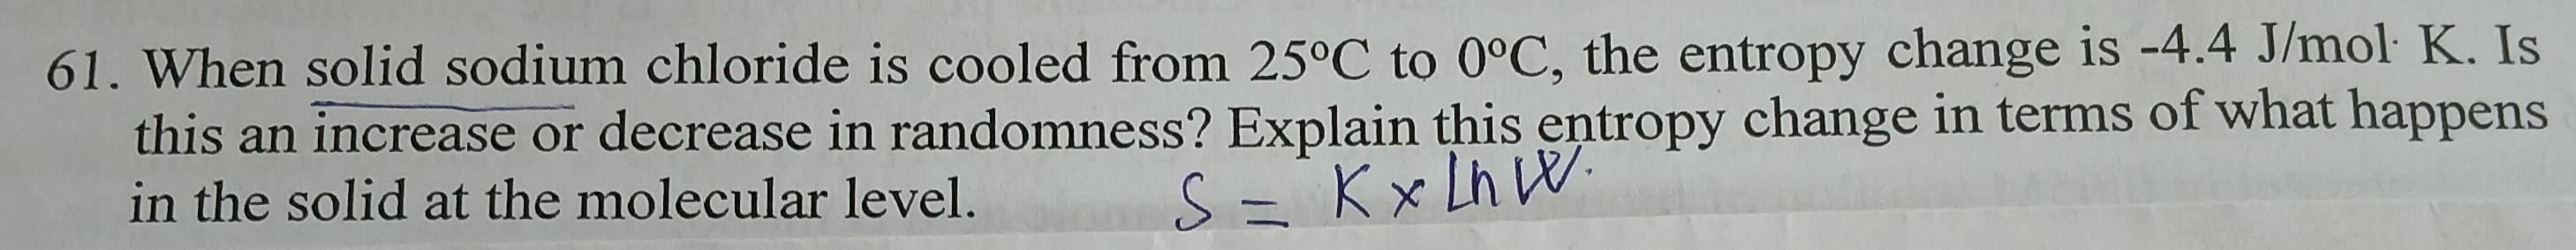 61. When solid sodium chloride is cooled from 25ºC to 0ºC, the entropy change is -4.4 J/mol· K. Is
this an increase or decrease in randomness? Explain this entropy change in terms of what happens
in the solid at the molecular level.
S = K × Ln W.